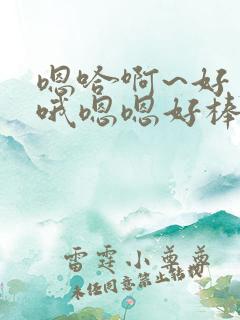 嗯哈啊~好
哦嗯嗯好棒
雷霆小尊尊
未经同意禁止转载